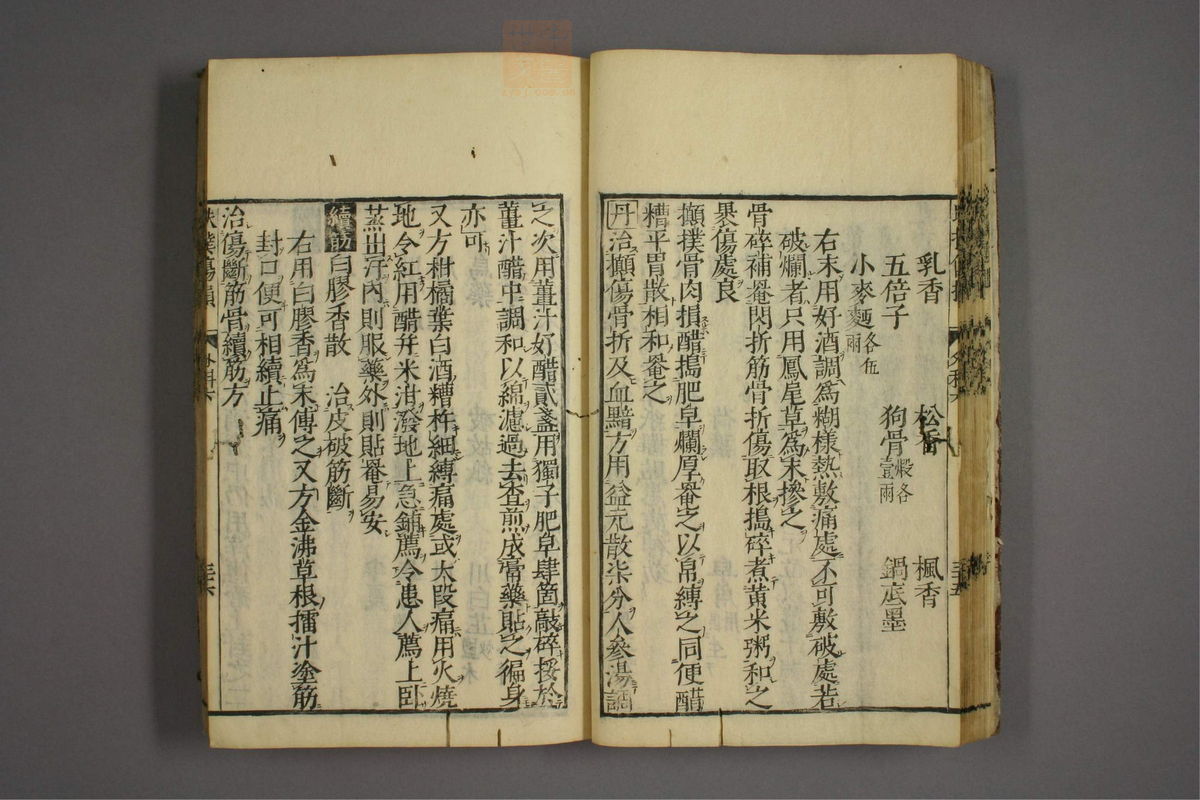 乳香 松香 楓香
五倍子 狗骨煅各壹兩 鍋底墨
小麥麵各伍兩
右末用好酒調為糊樣熱敷痛處不可敷破處若
破爛者只用鳳尾草為末摻之
骨碎補罨閃折筋骨折傷取根搗碎煮黃米粥和之
裹傷處良
攧撲骨肉損醋搗肥皁爛厚罨之以帛縛之同便醋
糟平胃散相和罨之
丹治攧傷骨折及血黯方用益元散柒分人參湯調
之次用薑汁好醋貳盞用獨子肥皁肆箇敲碎挼於
薑汁醋中調和以綿濾過去查煎成膏藥貼之徧身
亦可
又方柑橘葉白酒糟杵細縛痛處或大段痛用火燒
地令紅用醋并米泔潑地上急鋪薦令患人薦上臥
蒸出汗內則服藥外則貼罨易安
續筋白膠香散 治皮破筋斷
右用白膠香為末傅之又方金沸草根擂汁塗筋
封口便可相續止痛
治傷斷筋骨續筋方
外科六 三十六